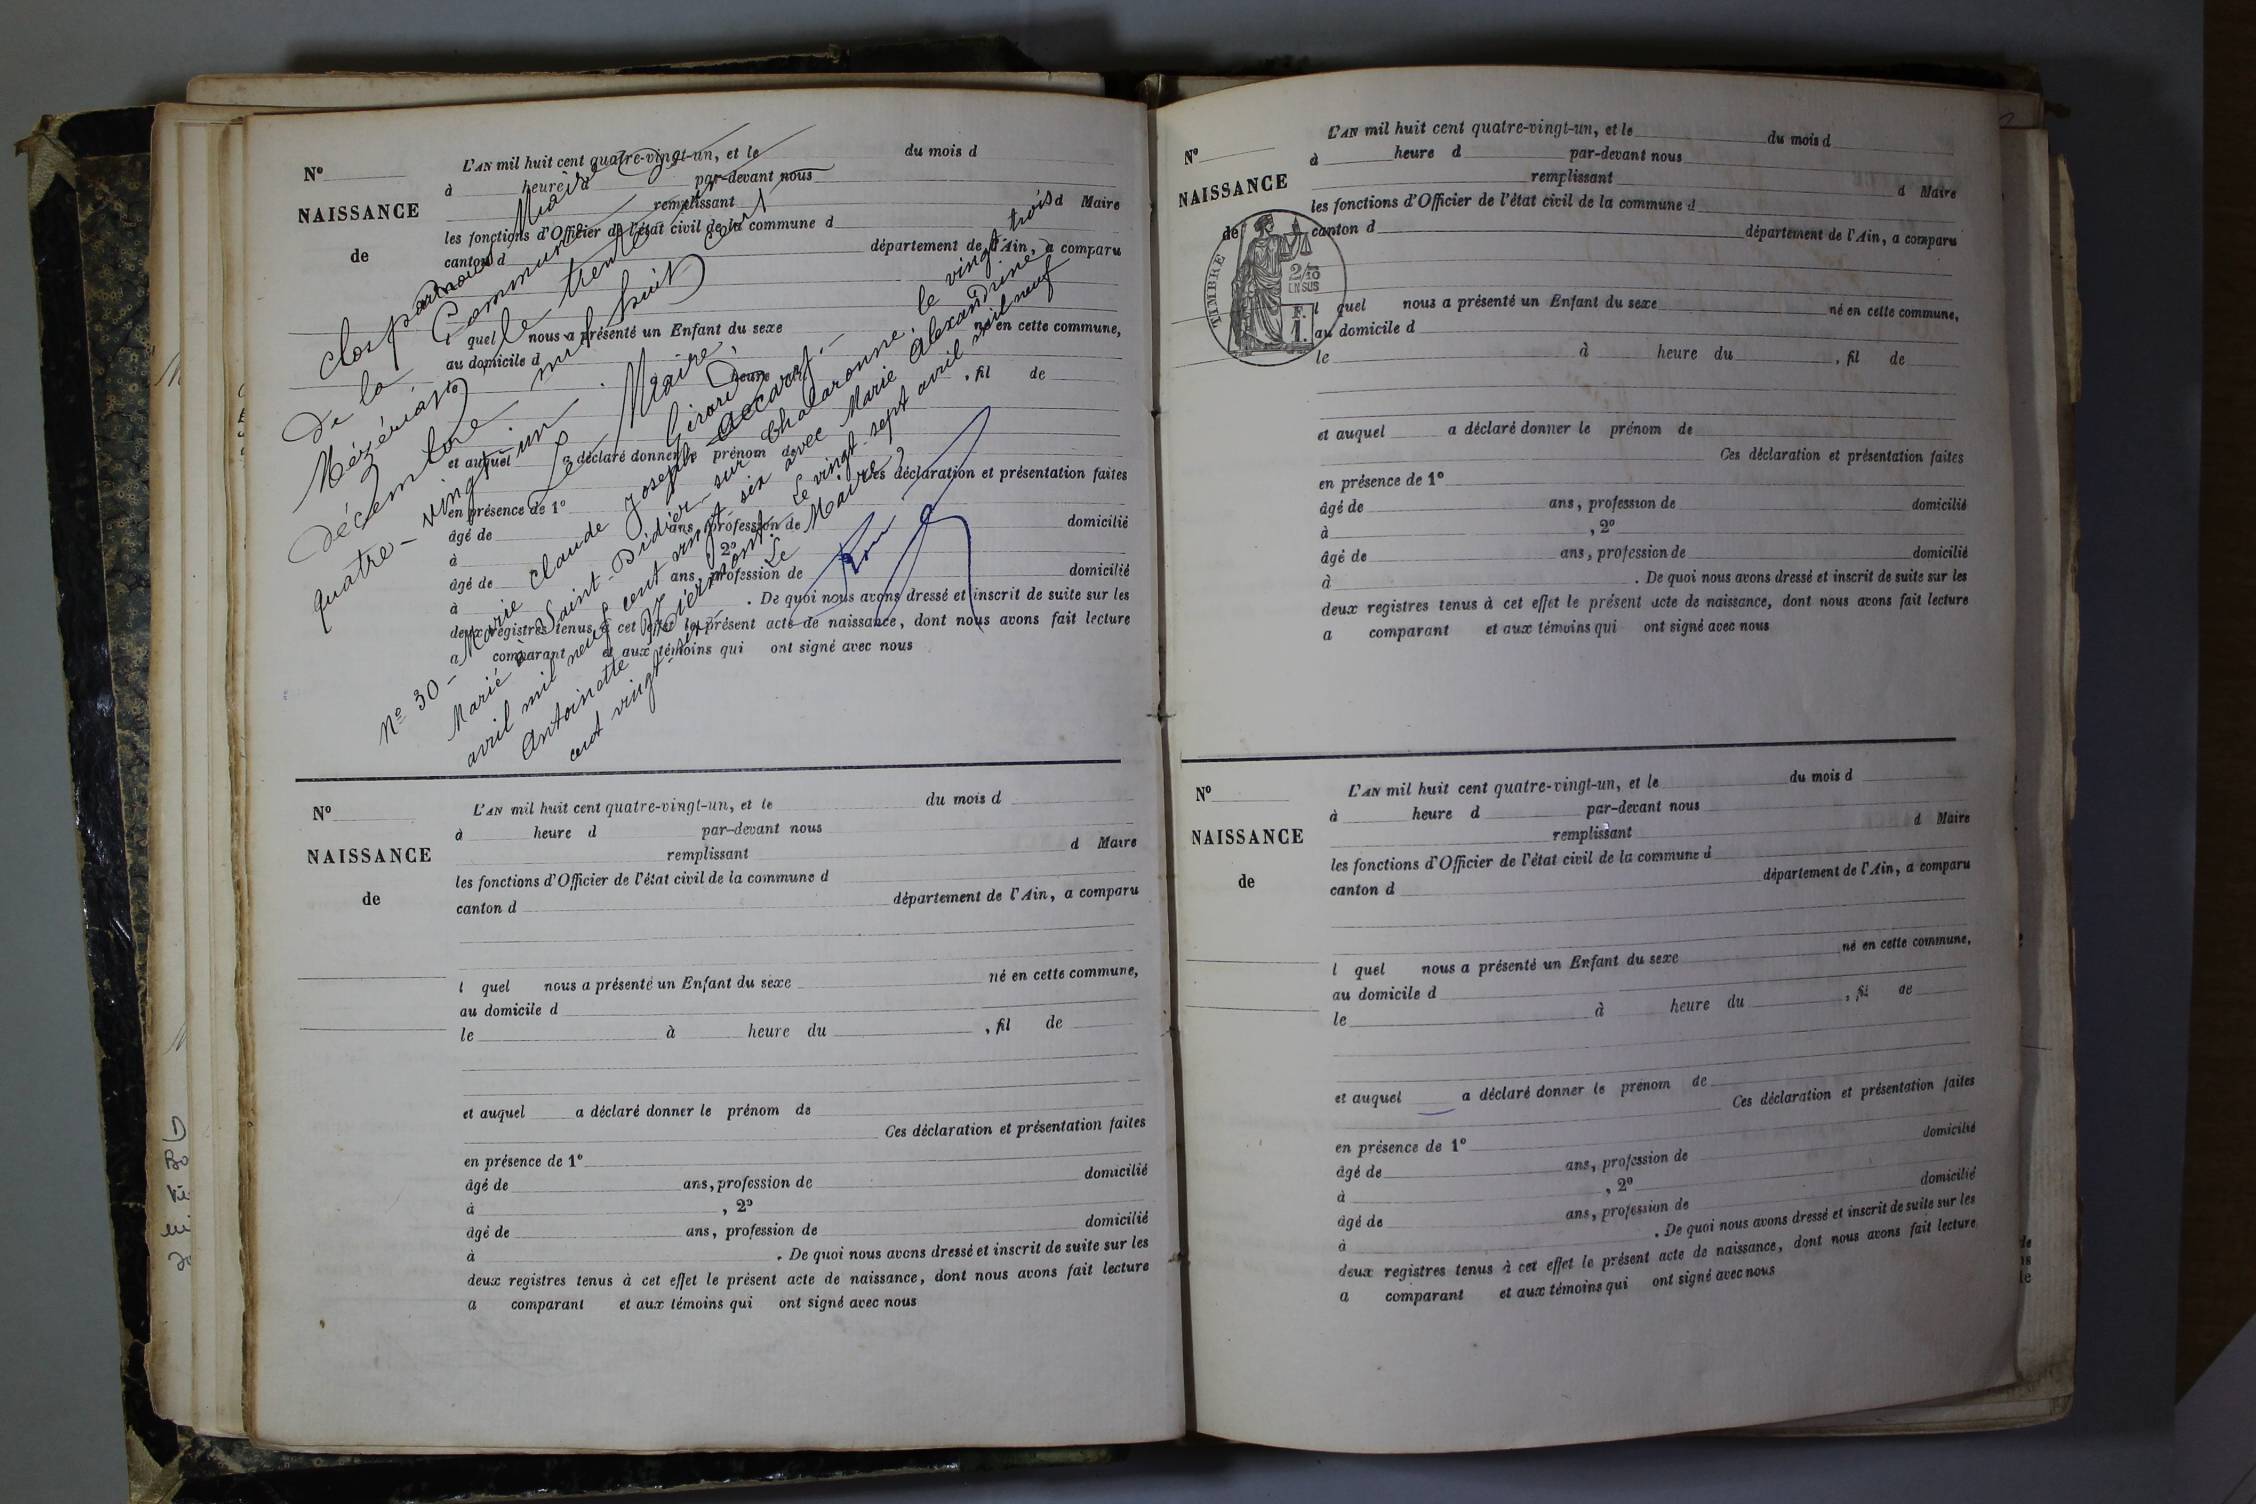 N°
NAISSANCE
de
L'AN mil huit cent quatre-vingt-un, et le du mois d
à heure d par-devant nous
remplissant d Maire
les fonctions d'Officier de l'état civil de la commune d
canton d département de l'Ain, a comparu
l quel nous a présenté un Enfant du sexe né en cette commune,
au domicile d
heure , fil de
et auquel a déclaré donner le prénom de
Ces déclaration et présentation faites
en présence de 1°
âgé de ans, profession de domicilié
à 2°
âgé de ans, profession de domicilié
à . De quoi nous avons dressé et inscrit de suite sur les
deux registres tenus à cet effet le présent acte de naissance, dont nous avons fait lecture
a comparant et aux témoins qui ont signé avec nous
Clos par nous Maire
De la Commune
Mézériat le trente et un
décembre mil huit cent
quatre-vingt-un.
Le Maire
Girard
N° 30 - Marie Claude Joseph Accary -
Marié à Saint-Didier-sur Chalaronne, le vingt trois
avril mil neuf cent vingt-six avec Marie Alexandrine
Antoinette Le vingt-sept avril mil neuf
cent vingt-six. Le Maire
N°
NAISSANCE
de
L'AN mil huit cent quatre-vingt-un, et le du mois d
à heure d par-devant nous
remplissant d Maire
les fonctions d'Officier de l'état civil de la commune d
canton d département de l'Ain, a comparu
l quel nous a présenté un Enfant du sexe né en cette commune,
au domicile d
le à heure du , fil de
et auquel a déclaré donner le prénom de
Ces déclaration et présentation faites
en présence de 1°
âgé de ans, profession de domicilié
à , 2°
âgé de ans, profession de domicilié
à . De quoi nous avons dressé et inscrit de suite sur les
deux registres tenus à cet effet le présent acte de naissance, dont nous avons fait lecture
a comparant et aux témoins qui ont signé avec nous
N°
NAISSANCE
de
TIMBRE
2/10
EN SUS
F.
1.
L'AN mil huit cent quatre-vingt-un, et le du mois d
à heure d par-devant nous
remplissant d Maire
les fonctions d'Officier de l'état civil de la commune d
canton d département de l'Ain, a comparu
l quel nous a présenté un Enfant du sexe né en cette commune,
au domicile d
le à heure du , fil de
et auquel a déclaré donner le prénom de
Ces déclaration et présentation faites
en présence de 1°
âgé de ans, profession de domicilié
à , 2°
âgé de ans, profession de domicilié
à . De quoi nous avons dressé et inscrit de suite sur les
deux registres tenus à cet effet le présent acte de naissance, dont nous avons fait lecture
a comparant et aux témoins qui ont signé avec nous
N°
NAISSANCE
de
L'AN mil huit cent quatre-vingt-un, et le du mois d
à heure d par-devant nous
remplissant d Maire
les fonctions d'Officier de l'état civil de la commune d
canton d département de l'Ain, a comparu
l quel nous a présenté un Enfant du sexe né en cette commune,
au domicile d
le à heure du , fil de
et auquel a déclaré donner le prénom de
Ces déclaration et présentation faites
en présence de 1°
âgé de ans, profession de domicilié
à , 2°
âgé de ans, profession de domicilié
à . De quoi nous avons dressé et inscrit de suite sur les
deux registres tenus à cet effet le présent acte de naissance, dont nous avons fait lecture
a comparant et aux témoins qui ont signé avec nous